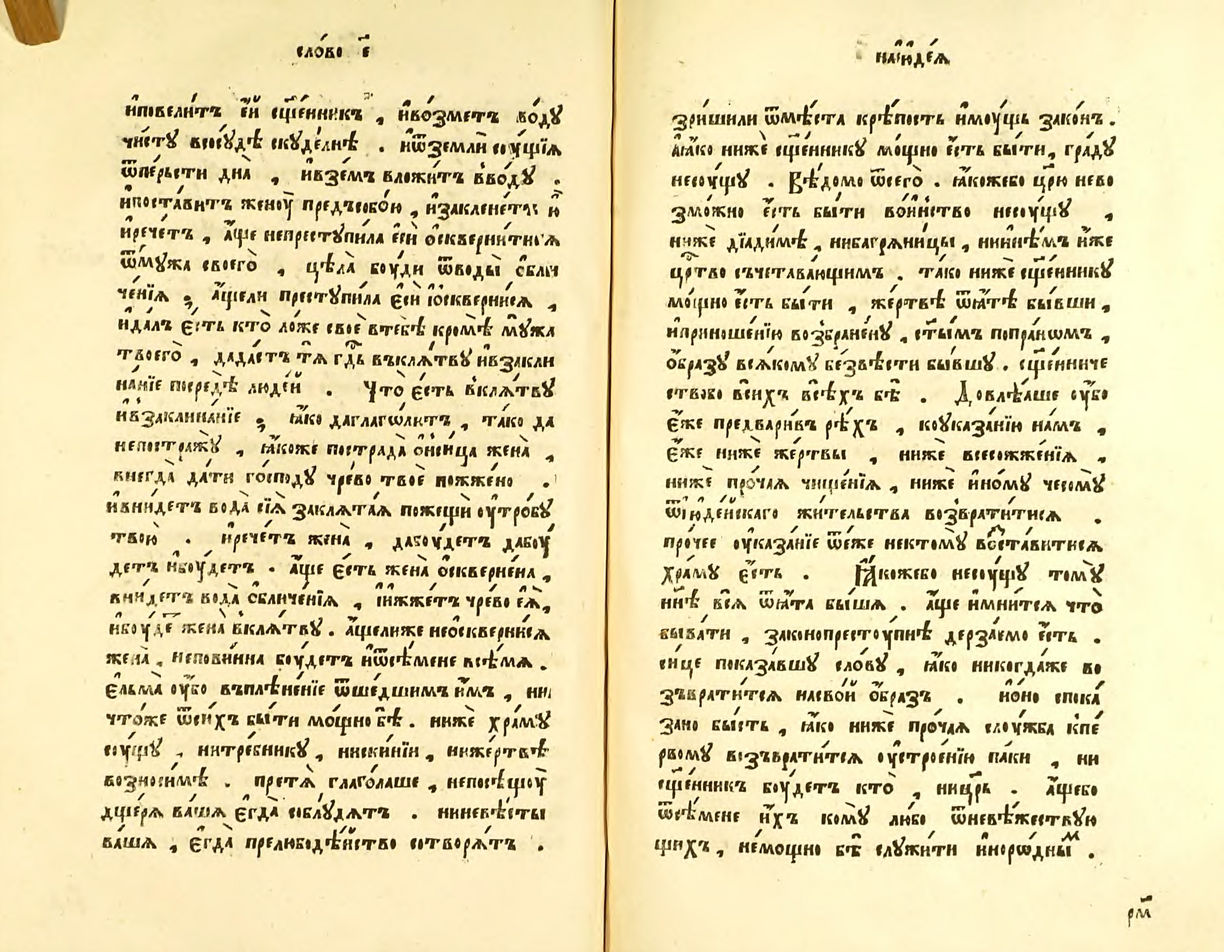 сло́во є҃
и҆повели́тъ є҆́й сщ҃е́нникъ , и҆во́зметъ во́дꙋ
чи́стꙋ всосꙋ́дѣ скꙋде́лнѣ . и҆ѿземлѝ сꙋ́щїѧ
ѿпе́рьсти дна̀ , и҆взе́мъ вложи́тъ вво́дꙋ .
и҆поста́витъ женоу̀ предъсобо́ю , и҆закленє́тъ ю҆̀
и҆рече́тъ , а҆́ще непрестꙋпи́ла є҆сѝ ѡ҆скверни́тисѧ
ѿмꙋ́жа своего̀ , цѣ́ла боу́ди ѿводы̀ ѡ҆бли
че́нїѧ ; а҆́щели престꙋпи́ла є҆сѝ и҆ѡ҆скверни́сѧ ,
и҆да́лъ є҆́сть кто̀ ло́же своѐ втебѣ̀ кро́мѣ мꙋ́жа
твоего̀ , дада́стъ тѧ̀ гд҇ь въклѧ́твꙋ и҆взакли
на́нїе посредѣ̀ люде́й . Что̀ є҆́сть вклѧ́твꙋ
и҆взаклина́нїе ; ꙗ҆́ко даглаго́литъ , та́ко да
непостра́жꙋ , ꙗ҆́коже пострада̀ ѻ҆́нсица жена̀ ,
внегда̀ да́ти го́сподꙋ чре́во твоѐ пожжено̀ .
и҆вни́детъ вода̀ сїѧ̀ заклѧ́таѧ пожещѝ оу҆тро́бꙋ
твою̀ . и҆рече́тъ жена̀ , дабоу́детъ дабоу́
детъ и҆боу́детъ . а҆́ще є҆́сть жена̀ ѡ҆скверне́на ,
вни́детъ вода̀ ѡ҆бличе́нїѧ , и҆и҆жже́тъ чре́во є҆ѧ̀ ,
и҆боу́де жена̀ вклѧ́твꙋ . а҆́щелиже неѡ҆скверни́сѧ
жена̀ , непови́нна боу́детъ и҆ѿсѣ́мене всѣ́мѧ .
є҆льма̀ оу҆́бо въплѣне́нїе ѿше́дшимъ и҆̀мъ , ни
что́же ѿси́хъ бы́ти мо́щно бѣ̀ . нижѐ хра́мꙋ
сꙋ́щꙋ , нитре́бникꙋ , нискі́нїи , ниже́ртвѣ
возно́симѣ . претѧ̀ глаго́лаше , непосѣщоу̀
дщерѧ̀ ва́шѧ є҆гда̀ соблꙋ́дѧтъ . ниневѣ́сты
ва́шѧ , є҆гда̀ прелюбодѣ́йство сотворѧ́тъ .
наі҆ю҆де́ѧ
зриши́ли ѿмѣ́ста крѣ́пость и҆моу́щь зако́нъ .
а҆ꙗ҆́ко нижѐ сщ҃е́нникꙋ мо́щно є҆́сть бы́ти , гра́дꙋ
несоу́щꙋ . Вѣ́домо ѿсего̀ . ꙗ҆́коже҆бо цр҃ю нево
змо́жно є҆́сть бы́ти во́инство несоу́щꙋ ,
нижѐ дїади́мѣ , нибагрѧни́цы , нии҆нѣ́мъ и҆́же
цр҇тво съчетава́ющимъ . та́ко нижѐ сщ҃е́нникꙋ
мо́щно є҆́сть бы́ти , же́ртвѣ ѿѧ́тѣ бы́вши ,
и҆приноше́нїю возбране́нꙋ , ст҃ы́мъ попра́номъ ,
ѡ҆́бразꙋ всѧ́комꙋ безвѣ́сти бы́вшꙋ . сщ҃е́нниче
ствобо всихъ всѣ́хъ бѣ̀ . Довлѣ́аше оу҆́бо
є҆́же предвари́въ рѣ́хъ , коуказа́нїю на́мъ ,
є҆́же нижѐ же́ртвы , нижѐ всесожже́нїѧ ,
нижѐ про́чаѧ чище́нїѧ , нижѐ и҆но́мꙋ чесомꙋ̀
ѿі҆ю҆де́йскаго жи́тельства возврати́тисѧ .
про́чее оу҆каза́нїе ѿе́же не́ктомꙋ воста́витисѧ
хра́мꙋ є҆́сть . Ꙗ҆́коже҆бо несоу́щꙋ томꙋ̀
нн҃ѣ всѧ̀ ѿѧ́та бы́шѧ . а҆́ще и҆мни́тсѧ что̀
быва́ти , законопрестоу́пнѣ дерза́емо є҆́сть .
си́це показа́вшꙋ сло́вꙋ , ꙗ҆́ко никогда́же во
зъврати́тсѧ насво́й ѡ҆́бразъ . и҆ѻ҆но спока́
зано бы́сть , ꙗ҆́ко нижѐ про́чаѧ слоу́жба кпе́
рвомꙋ возъврати́тсѧ оу҆строе́нїю па́ки , ни
сщ҃е́нникъ боу́детъ кто̀ , ницр҃ь . а҆́щебо
ѿсѣ́мене и҆́хъ комꙋ̀ лю́бо ѿневѣ́жествꙋю
щихъ , немо́щно бѣ̀ слꙋжи́ти и҆норѡ́дныⷨ .
рм҃